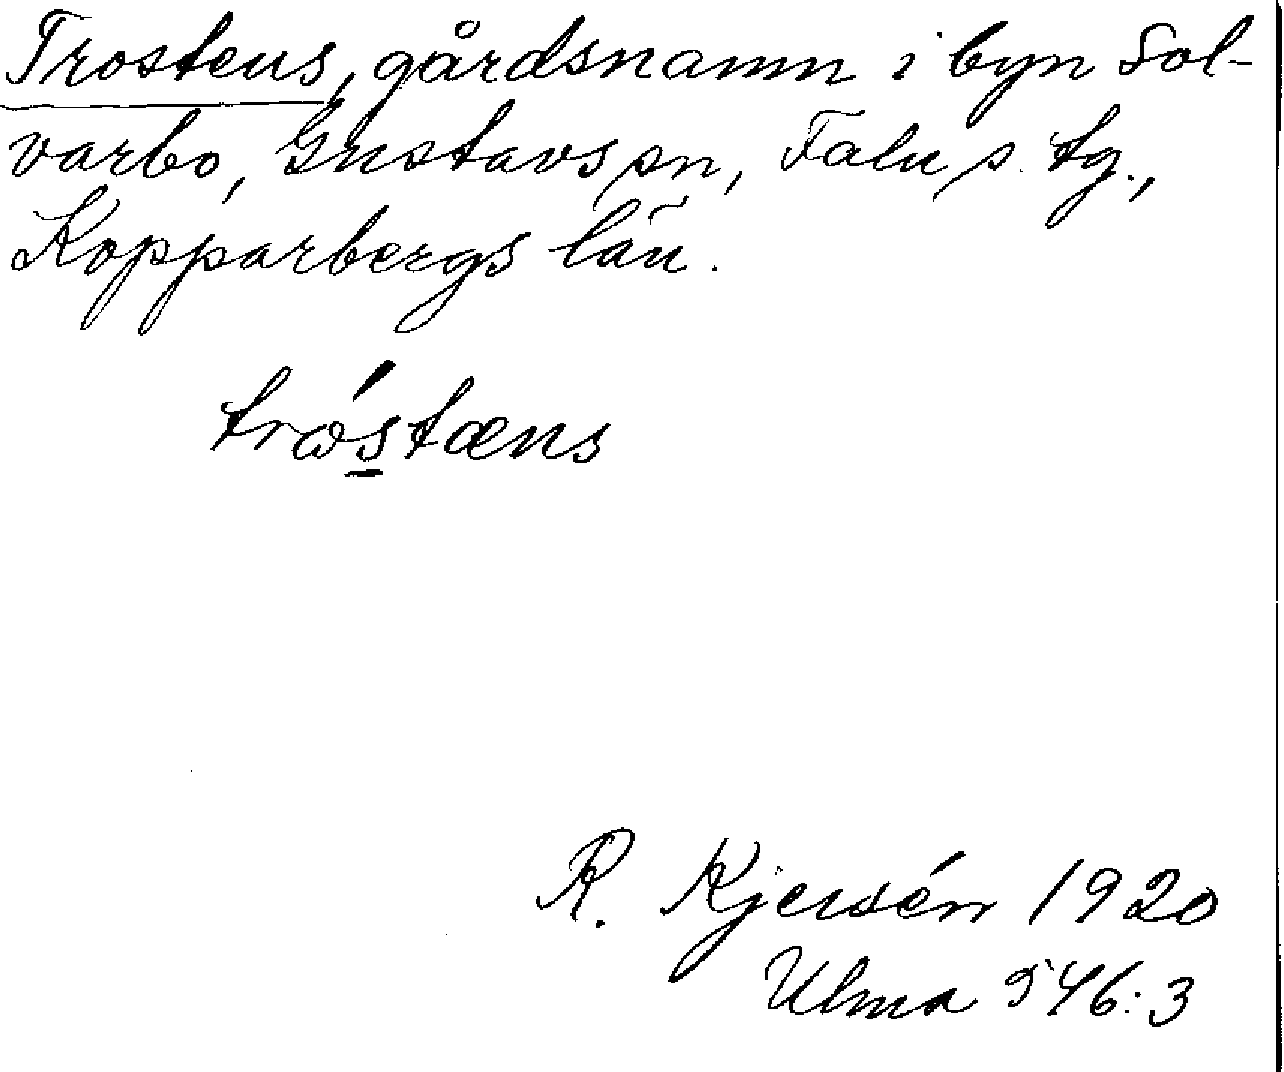 Trostens, gårdsnamn i byn Sol-
varbo, Gustavs sn, Falu s. tg.,
Kopparbergs län.
trɷ́s̲tæns
R. Kjersén 1920
Ulma 546:3